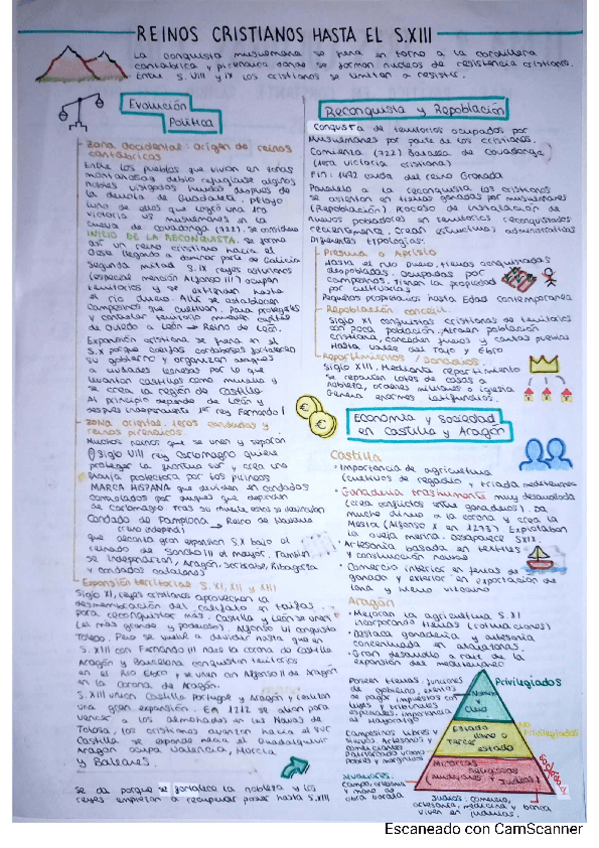 REINOS CRISTIANOS HASTA EL S.XIII
La conquista musulmana se frena en torno a la cordillera
cantábrica y pirenaica donde se forman núcleos de resistencia cristianos.
Entre S. VIII y IX los cristianos se limitan a resistir.
Evolución
Política
Zona occidental: origen de reinos
cantábricos
Entre los pueblos que vivían en zonas
montañosas debió refugiarse algunos
nobles visigodos huidos después de
la derrota de Guadalete. Pelayo
uno de ellos que logró una 1ra
victoria VS musulmanes en la
cueva de Covadonga (722). Se considera
INICIO DE LA RECONQUISTA. Se forma
así un reino cristiano hacia el
Oeste llegando a dominar parte de Galicia
Segunda mitad S. IX reyes asturianos
(especial mención Alfonso III) ocupan
territorios y se extienden hasta
el río Duero. Allí se establecen
campesinos que cultivan. Para protegerlos
y controlar territorio mueven capital
de Oviedo a León → Reino de León.
Expansión cristiana se frena en el
S.X porque califas cordobeses fortalecen
su gobierno y organizan
a ciudades leonesas por lo que
levantan castillos como muralla y
se crea la región de Castilla
Al principio depende de León y
después independiente 1er rey Fernando I
Zona oriental: 1eros condados y
reinos pirenaicos
Muchos reinos que se unen y separan
Siglo VIII rey Carlomagno quiere
proteger la frontera sur y crea una
franja protectora por los pirineos
MARCA HISPANA que dividen en condados
controlados por duques que dependen
de Carlomagno tras su muerte estos se
Condado de Pamplona → Reino de Navarra
(reino independ)
que alcanza gran expansión S.X bajo el
reinado de Sancho III el mayor. También
se independizan, Aragón, Sobrarbe, Ribagorza
y condados catalanes
Expansión territorial S. XI, XII y XIII
Siglo XI, reyes cristianos aprovechan la
desmembración del califato en taifas
para reconquistar más. Castilla y León se unen
(el más grande y poderoso) Alfonso VI conquista
Toledo. Pero se vuelve a dividir hasta que en
S. XIII con Fernando III nace la corona de Castilla
Aragón y Barcelona conquistan territorios
en el Río Ebro y se unen con Alfonso II de Aragón
en la corona de Aragón.
S. XIII unión Castilla Portugal y Aragón
una gran expansión. En 1212 se alían para
vencer a los almohades en Las Navas de
Tolosa, los cristianos avanzan hacia el sur
Castilla se expande hacia el Guadalquivir
Aragón ocupa Valencia, Murcia
y Baleares.
Se da porque se fortalece la nobleza y los
reyes empiezan a recuperar poder hasta S.XIII
Reconquista y Repoblación
Conquista de territorios ocupados por
Musulmanes por parte de los cristianos.
Comienza (722) Batalla de Covadonga
(1era victoria cristiana)
Fin: 1492 caída del reino Granada
Paralelo a la reconquista los cristianos
se asientan en tierras ganadas por musulmanes
(Repoblación) Proceso de instalación de
nuevos pobladores en territorios reconquistados
recientemente. Crean estructuras administrativas
Diferentes tipologías:
Presura o Aprisio
Hasta el río Duero, tierras conquistadas
despobladas. Ocupadas por
campesinos. Tienen la propiedad
por cultivarlas
Pequeños propietarios hasta Edad contemporánea
Repoblación concejil.
Siglo XI conquistas cristianas de territorios
con poca población. Atraen población
cristiana, conceden fueros y cartas pueblas
Hasta valle del Tajo y Ebro
Repartimientos / Donadíos.
Siglo XIII. Mediante repartimiento
se reparten lotes de casas a
nobleza, órdenes militares o iglesia
Genera enormes latifundios.
Economía y sociedad
en Castilla y Aragón
Castilla
· Importancia de agricultura
(cultivos de regadío y triada mediterránea
· Ganadería trashumante muy desarrollada
(crea conflictos entre ganaderos). Da
mucho dinero a la corona y crea la
Mesta (Alfonso X en 1273). Explotaban
la oveja merina. desaparece SXIX.
· Artesanía basada en textiles
y construcción naval
· Comercio interior en ferias de
ganado y exterior en exportación de
lana y hierro vizcaíno
Aragón
· Mejoran la agricultura S.XI
incorporando técnicas (rotaciones)
· Destaca ganadería y artesanía
continuada en
· Gran desarrollo a raíz de la
expansión del mediterráneo
Poseen tierras. funciones
de gobierno, exentos
de pagar impuestos con
leyes y tribunales
especiales. importancia
el Mayorazgo
Campesinos libres y
siervos artesanos y
comerciantes
pobres y marginados
Mudéjares:
Campo, artesanía
y mano de
obra barata
Nobleza
y
Clero
Privilegiados
Estado
llano o
Tercer
estado
No
Privilegiados
Minorías
religiosas
(mudéjares y judíos)
Sociedad
Judíos: comercio,
artesanía, medicina y banca
viven en juderías.
Escaneado con CamScanner